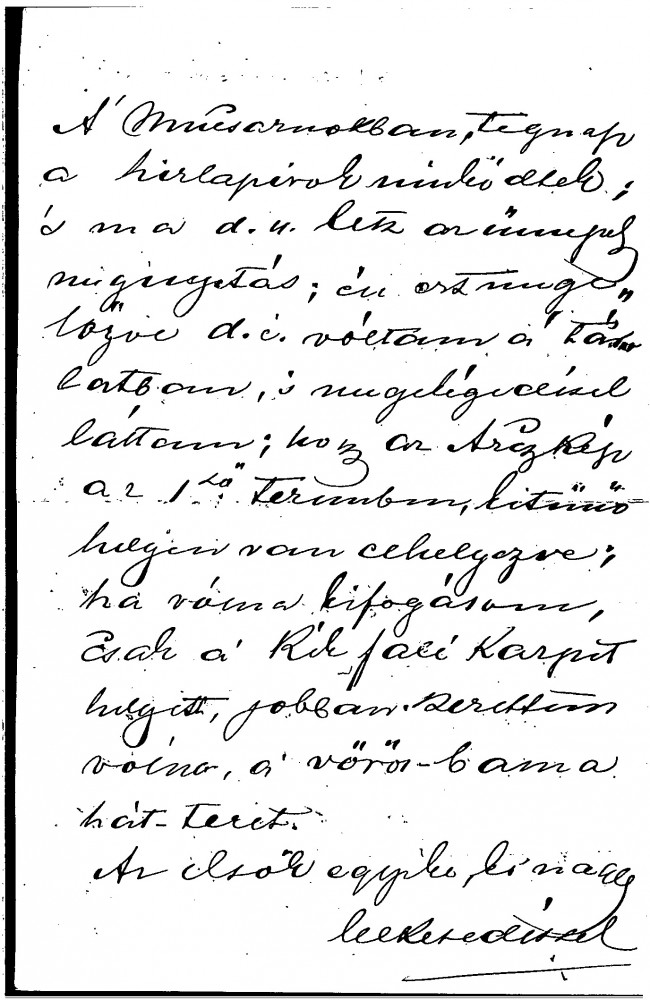 A' Műcsarnokban, tegnap
a hirlapirok működtek;
's ma d. u. lesz az ünnepély
megnyitás; én ezt mege„
lőzve d. e. vóltam a' tár
latban, 's megelégedéssel
láttam; hogy az Arczkép
az 1ső teremben, kitünő
helyen van elhelyezve;
ha vólna kifogásom,
csak a' Kék fali Karpit
helyett, jobban szerettem
vólna, a' vörös-barna
hát-teret.
Az elsők egyike, ki nagy
lelkesedéssel